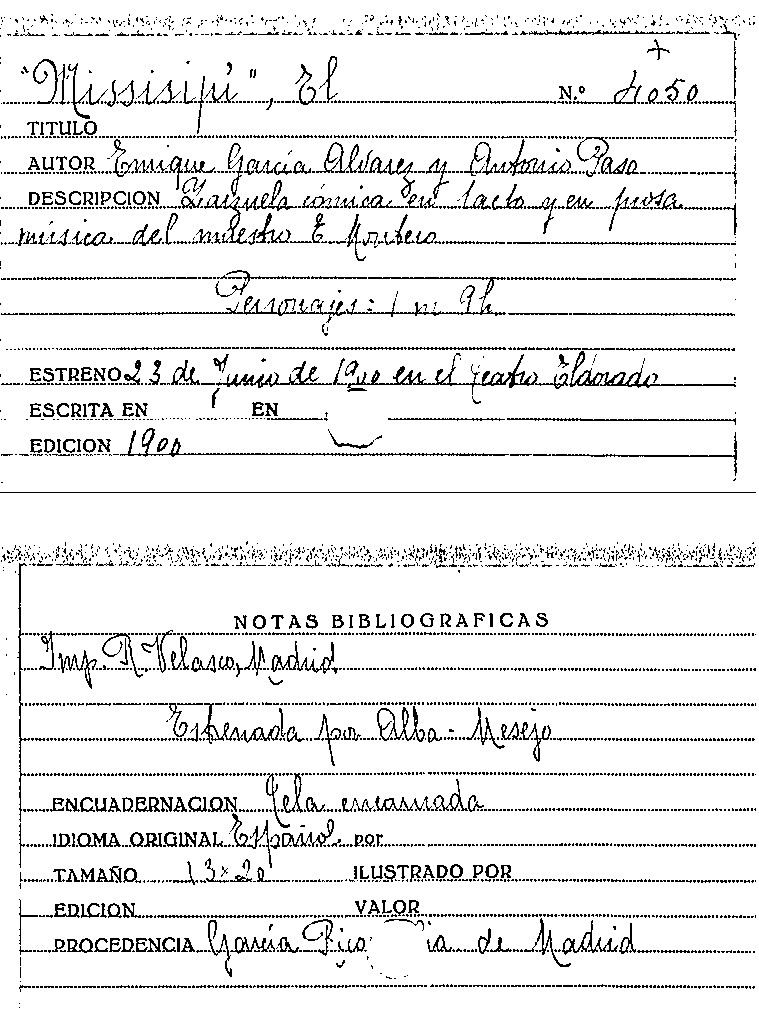 +
"Missisipi", El N.º 4050
TITULO
AUTOR Enrique García Alvarez y Antonio Paso
DESCRIPCION Zarzuela cómica en 1 acto y en prosa
música del maestro E Montero
Personajes: 1 m 9 h
ESTRENO 23 de Junio de 1900 en el teatro Eldorado
ESCRITA EN EN
EDICION 1900
NOTAS BIBLIOGRAFICAS
Imp. R. Velasco, Madrid
Estrenada por Alba - Mesejo
ENCUADERNACION Tela encarnada
IDIOMA ORIGINAL Español por
TAMAÑO 13 x 20 ILUSTRADO POR
EDICION VALOR
PROCEDENCIA García Rico de Madrid